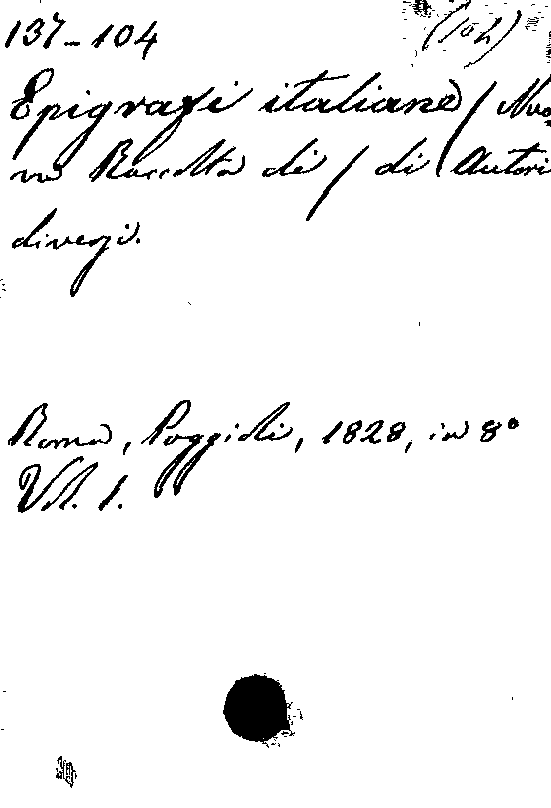 137-104 (104)
Epigrafi italiane / Nuo-
va Raccolta di / di Autori
diversi.
Roma, Poggioli, 1828, in 8°
Vol. 1.